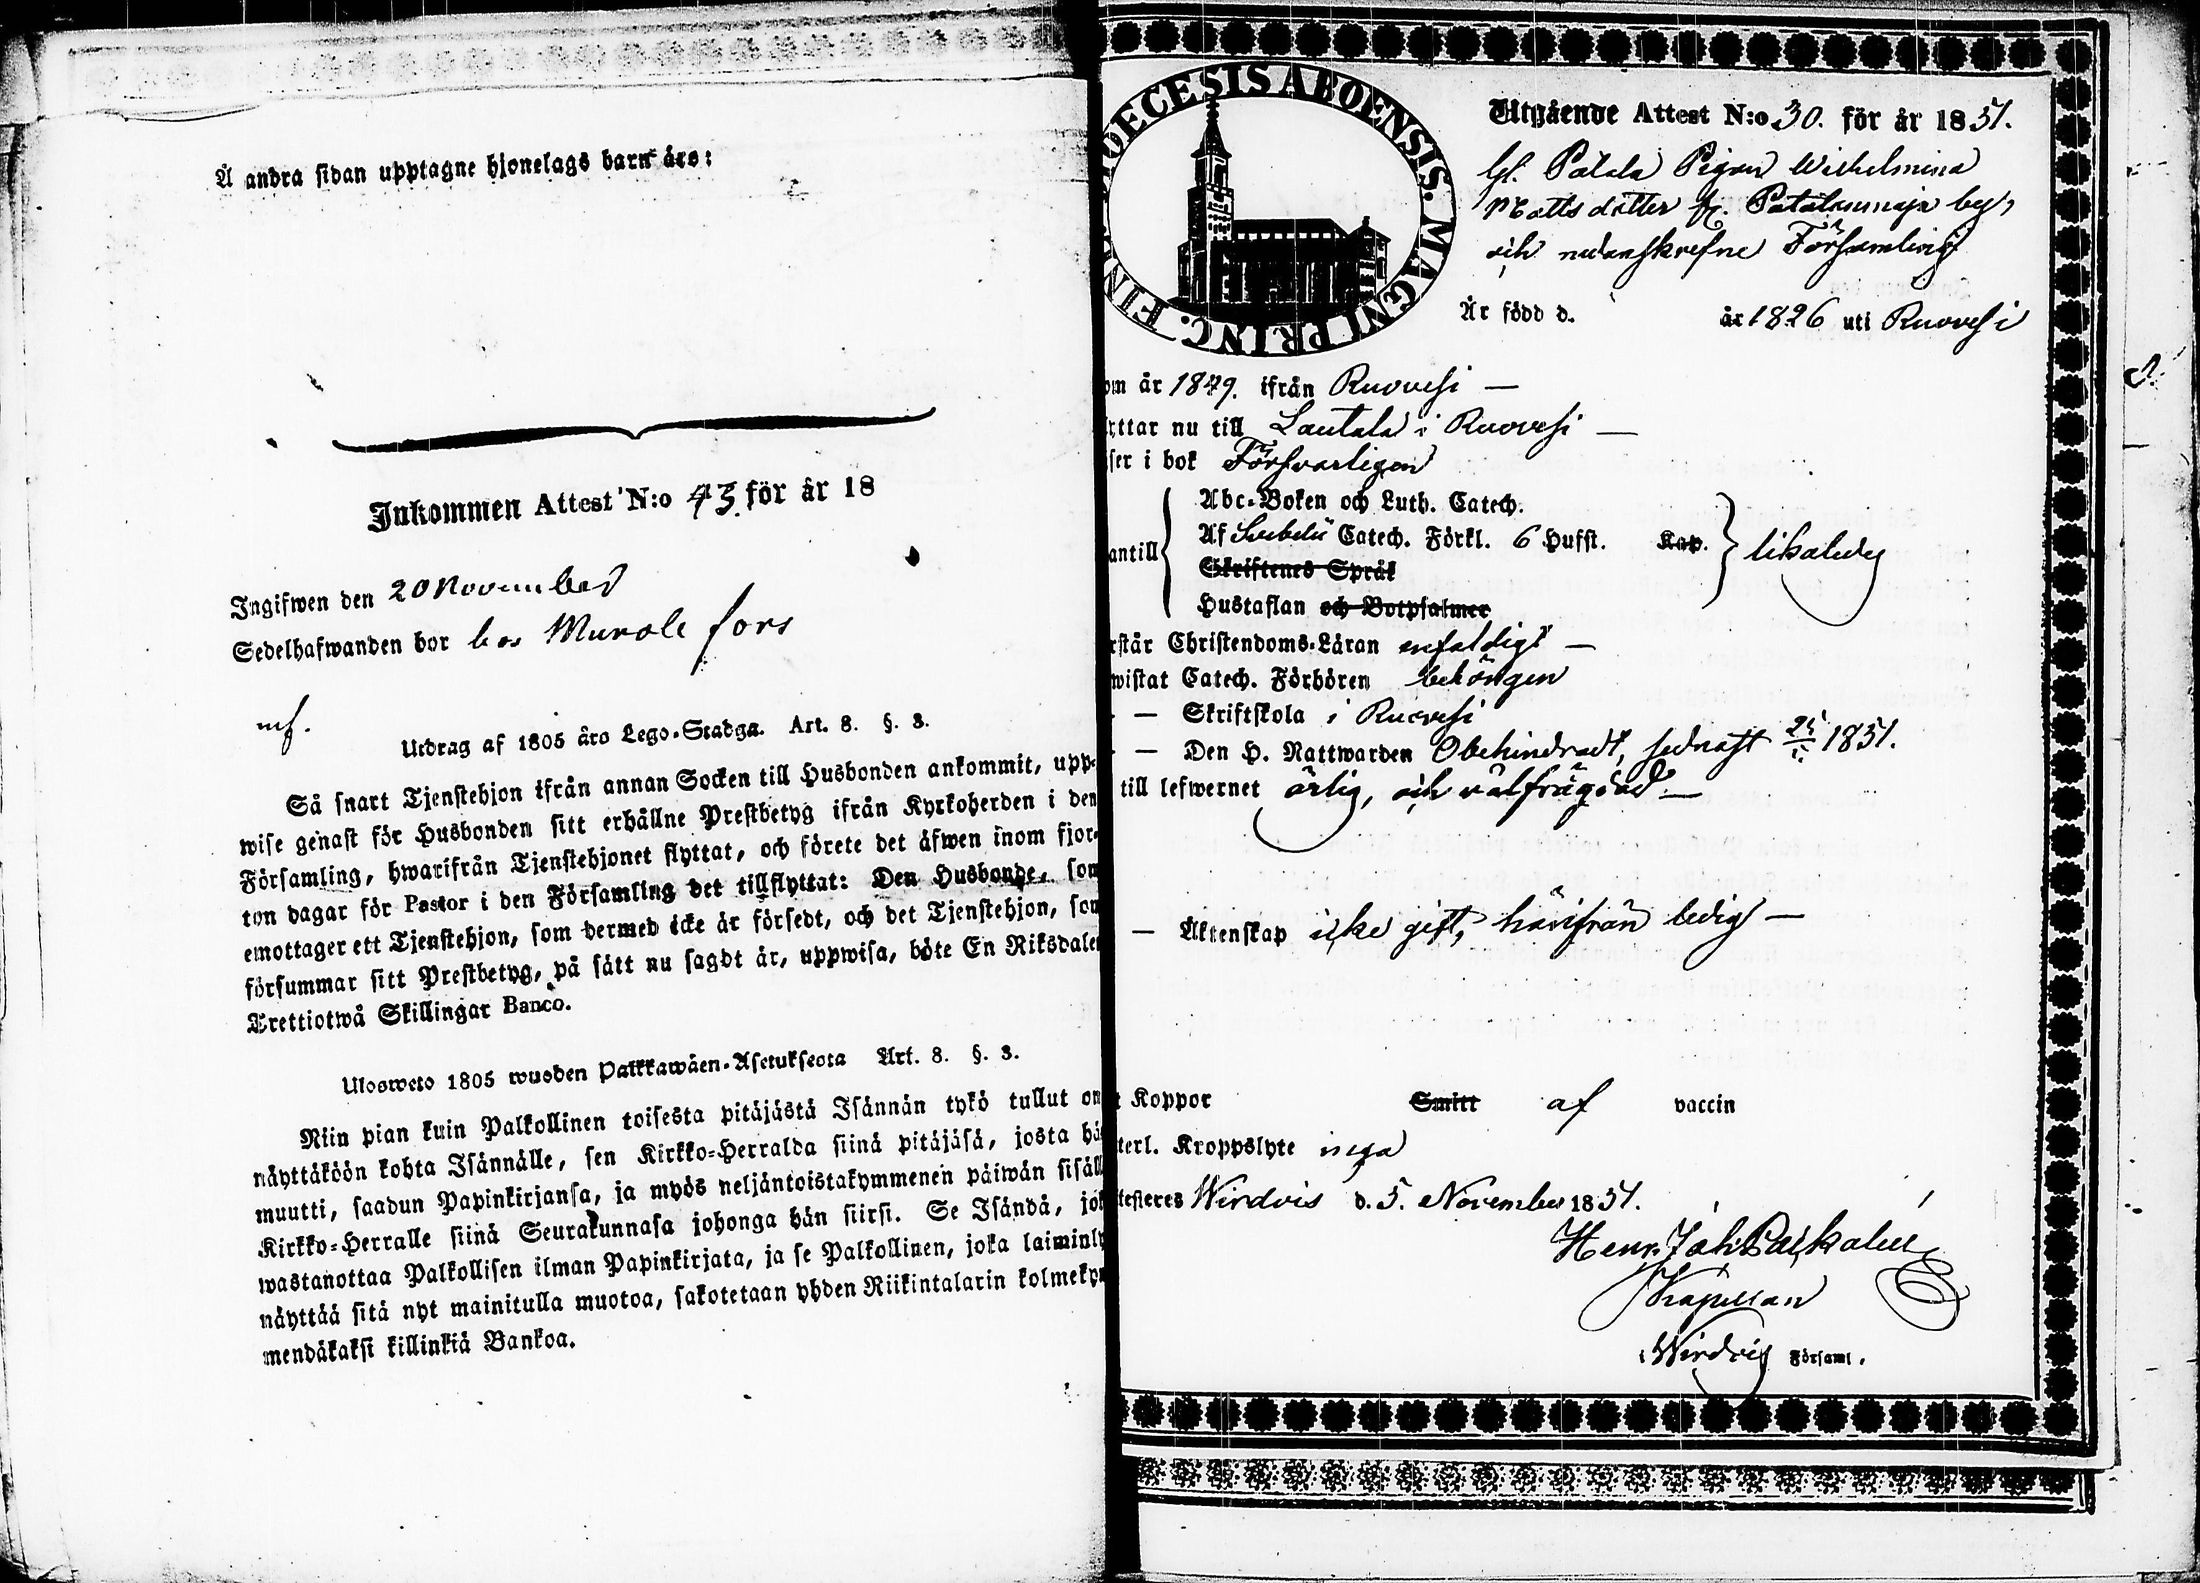 Å andra sidan upptagne hjonelags barn äro:
Inkommen Attest N:o 43. för år 18
Ingifwen den 20 November
Sedelhafwanden bor hos Murole fors
Utdrag af 1805 års Lego-Stadga. Art. 8. §. 3.
Så snart Tjenstehjon ifrån annan Socken till Husbonden ankommit, upp-
wise genast för Husbonden sitt erhållne Prestbetyg ifrån Kyrkoherden i den
Församling, hwarifrån Tjenstehjonet flyttat, och förete det äfwen inom fjor-
ton dagar för Pastor i den Församling det tillflyttat: Den Husbonde, som
emottager ett Tjenstehjon, som dermed icke är försedt, och det Tjenstehjon, som
försummar sitt Prestbetyg, på sätt nu sagdt är, uppwisa, böte En Riksdaler
Trettiotwå Skillingar Banco.
Ulosweto 1805 wuoden Palkkawäen-Asetuksesta Art. 8. §. 3.
Niin pian kuin Palkollinen toisesta pitäjästä Isännän tykö tullut on
näyttäköön kohta Isännälle, sen Kirkko-Herralda siinä pitäjäsä, josta hä
muutti, saadun Papinkirjansa, ja myös neljäntoistakymmenen päiwän sisäll
Kirkko-Herralle siinä Seurakunnasa johonga hän siirsi. Se Isändä, jok
wastanottaa Palkollisen ilman Papinkirjata, ja se Palkollinen, joka laiminly
näyttää sitä nyt mainitulla muotoa, sakotetaan yhden Riikintalarin kolmekym
mendäkaksi killinkiä Bankoa.
DIOECESIS ABOENSIS. MAGNI PRINC. FIN
Utgående Attest N:o 30. för år 1851.
Pigan Wilhelmina
Mattsdotter fr. by,
och nedanskrefne Församling
Är född d. år 1826 uti Ruovesi
om år 1849. ifrån Ruovesi —
yttar nu till Lautala i Ruovesi —
ser i bok Försvarligen
antill
Abc-Boken och Luth. Catech.
Af Svebelii Catech. Förkl. 6 Hufst. Kap.
likaledes
Skriftenes Språk
Hustaflan och Botpsalmer
rstår Christendoms-Läran enfaldigt —
wistat Catech. Förhören behörigen
— Skriftskola i Ruovesi
— Den H. Nattwarden Obehindradt, sednast 1851.
till lefwernet ärlig, och välfrägdad —
— Äktenskap icke gift, härifrån ledig —
Koppor Smitt af vaccin
terl. Kroppslyte inga
testeres Wirdois d. 5. November 1851.
Henr. Joh.
Kapellan
i Wirdois Församl.